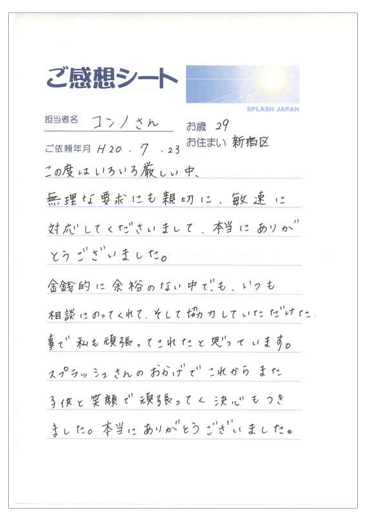 ご感想シート
SPLASH JAPAN
担当者名 コンノさん
お歳 29
ご依頼年月 H20.7.23
お住まい 新宿区
この度はいろいろ厳しい中、
無理な要求にも親切に、敏速に
対応してくださいまして、本当にありが
とうございました。
金銭的に余裕のない中でも、いつも
相談にのってくれて、そして協力していただけた
事で私も頑張ってこれたと思っています。
スプラッシュさんのおかげでこれからまた
子供と笑顔で頑張ってく決心もつき
ました。本当にありがとうございました。